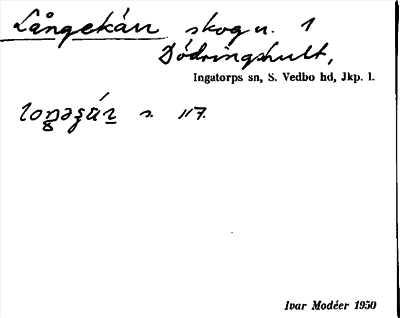 Långekärr skog u. 1
Dödringshult,
Ingatorps sn, S. Vedbo hd, Jkp. l.
s. 117.
Ivar Modéer 1950